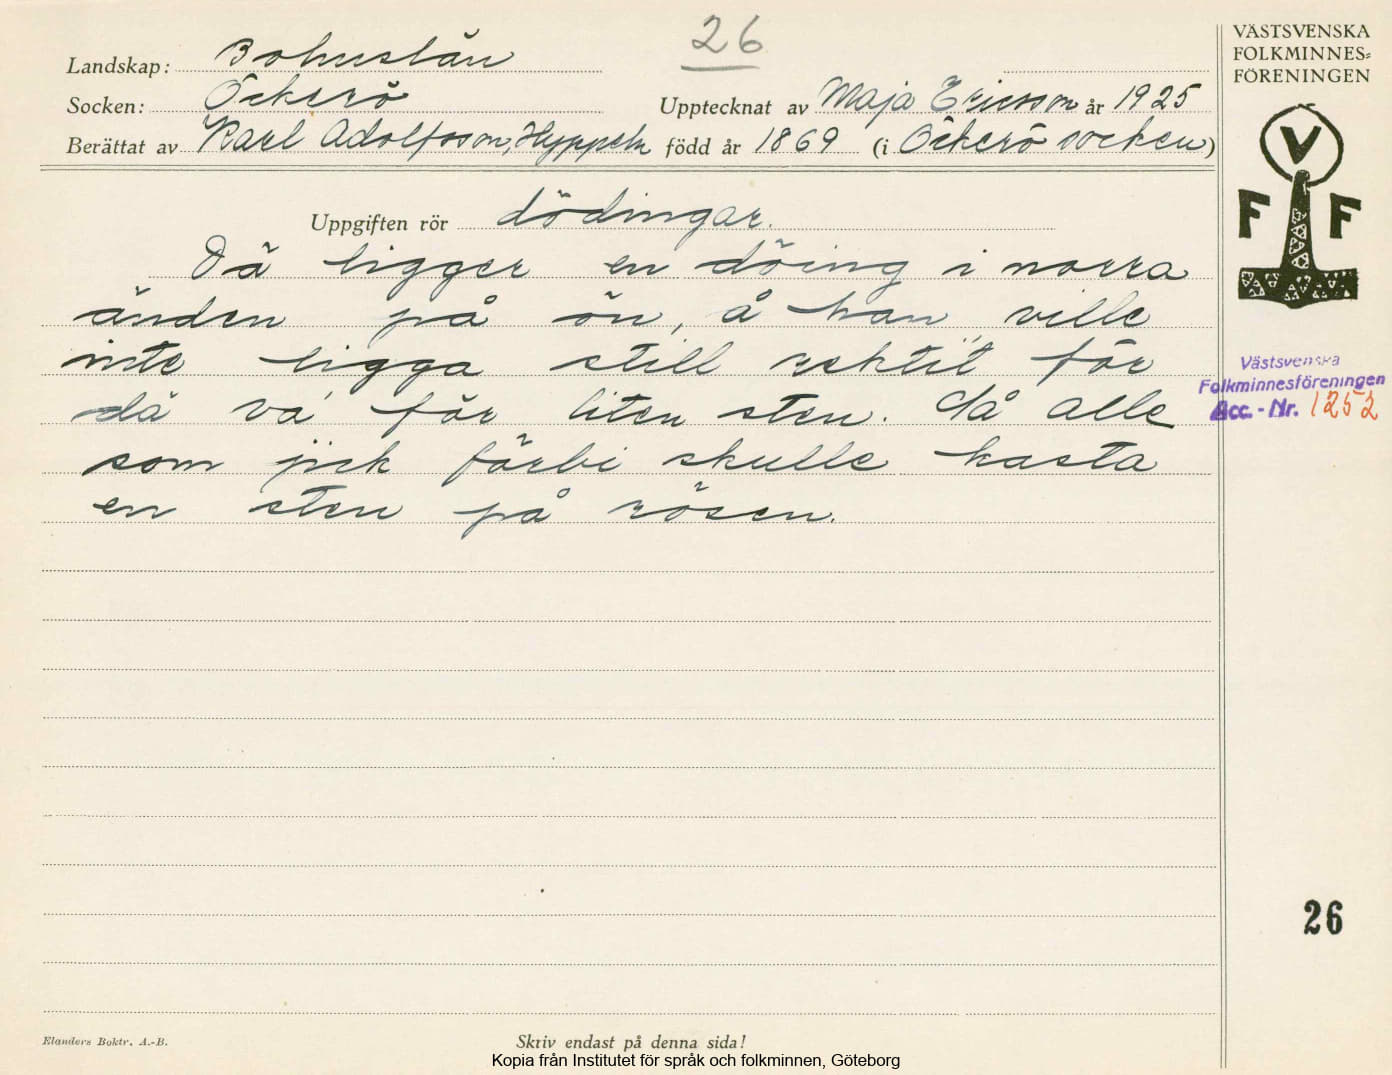 26
Landskap: Bohuslän
Socken: Öckerö
Upptecknat av Maja Ericsson år 1925
Berättat av Karl Adolfsson, Hyppeln född år 1869 (i Öckerö socken)
Uppgiften rör dödingar.
Dä ligger en döing i norra
änden på ön, å han ville
inte ligga still rektit för
dä va för liten sten. Då alle
som jick förbi skulle kasta
en sten på rösen.
VÄSTSVENSKA
FOLKMINNES-
FÖRENINGEN
V
F F
Västsvenska
Folkminnesföreningen
Acc.-Nr. 1252
26
Elanders Boktr. A.-B.
Skriv endast på denna sida!
Kopia från Institutet för språk och folkminnen, Göteborg